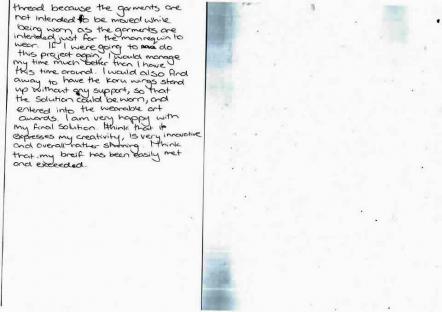 thread because the garments are
not intended to be moved while
being worn as the garments are
intended just for the mannequin to
wear. If I were going to do
this project again, I would manage
my time much better than I have
this time around. I would also find
away to have the koru wings stand
up without any support, so that
the solution could be worn, and
entered into the wearable art
awards. I am very happy with
my final solution. I think that it
expresses my creativity, is very innovative
and overall rather stunning. I think
that my breif has been easily met
and exceeded.